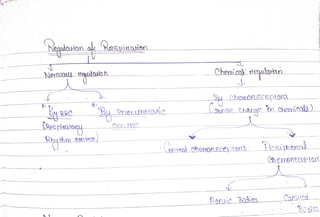 Regulation of Respiration
Nervous regulation
Chemical regulation
By RRC
(Respiratory
Rhythm centre)
By Pneumotaxic
centre
By chemoreceptors
(sense change in chemicals)
Central chemoreceptors
Peripheral
chemoreceptors
Aortic Bodies
Carotid
Bodies